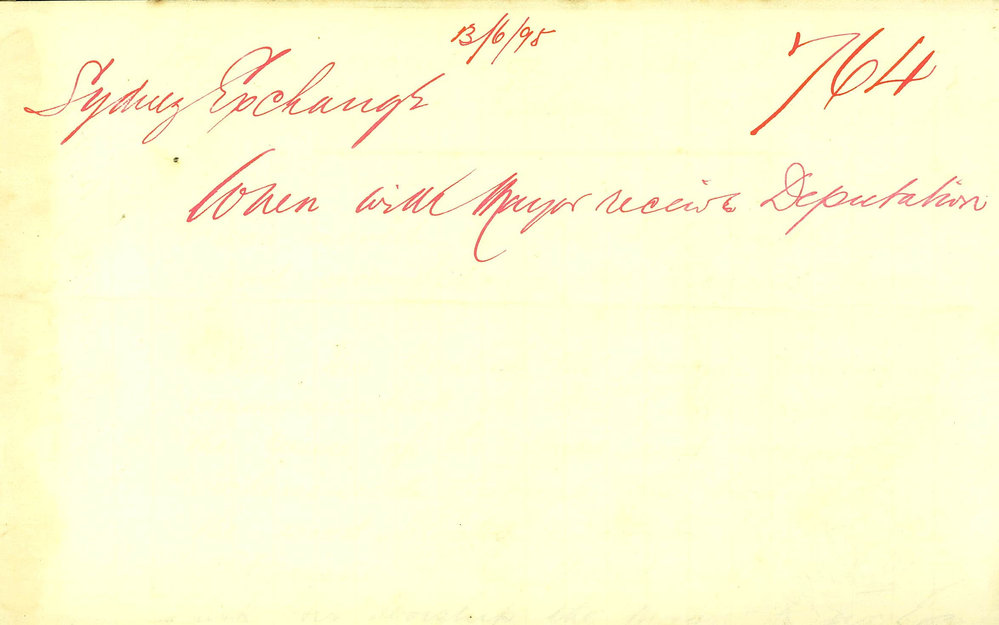 13/6/98
764
Sydney Exchange
When will Mayor receive Deputation